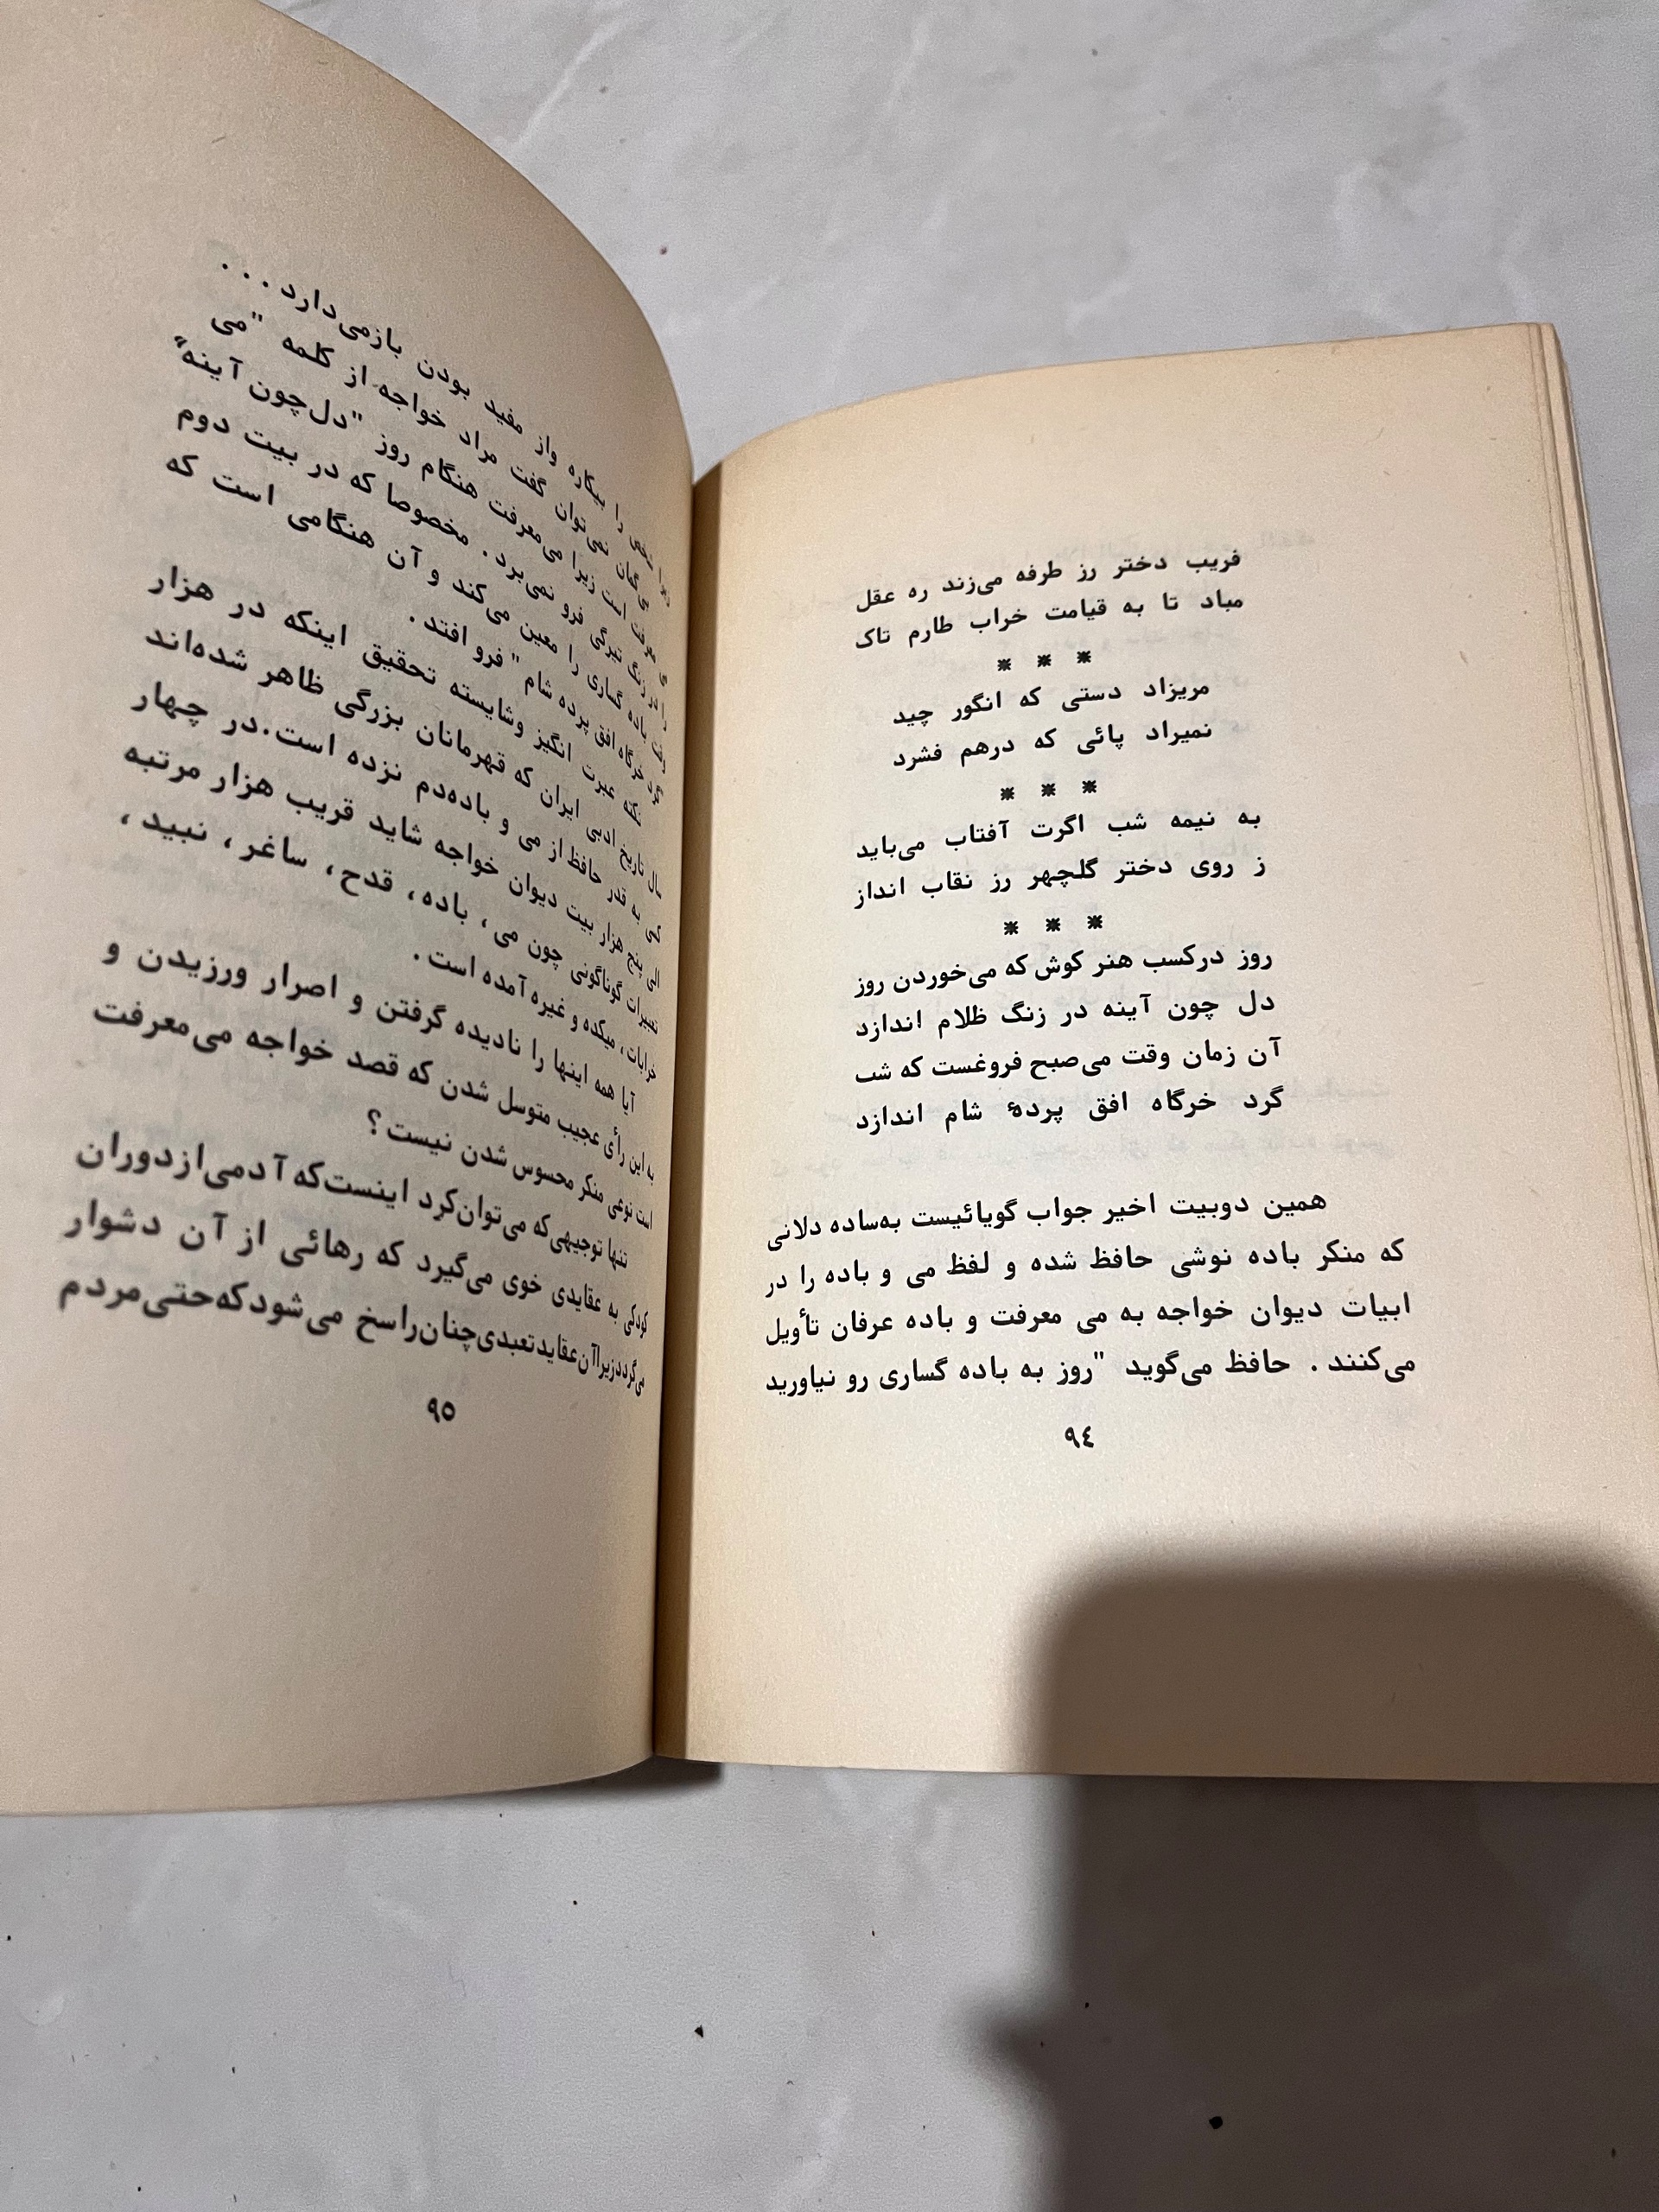 فریب دختر رز طرفه می‌زند ره عقل
مباد تا به قیامت خراب طارم تاک
* * *
مریزاد دستی که انگور چید
نمیراد پائی که درهم فشرد
* * *
به نیمه شب اگرت آفتاب می‌باید
ز روی دختر گلچهر رز نقاب انداز
* * *
روز درکسب هنر کوش که می‌خوردن روز
دل چون آینه در زنگ ظلام اندازد
آن زمان وقت می‌صبح فروغست که شب
گرد خرگاه افق پردهٔ شام اندازد
همین دوبیت اخیر جواب گویائیست به‌ساده دلانی
که منکر باده نوشی حافظ شده و لفظ می و باده را در
ابیات دیوان خواجه به می معرفت و باده عرفان تأویل
می‌کنند . حافظ می‌گوید "روز به باده گساری رو نیاورید
٩٤
را بیکاره واز مفید بودن بازمی‌دارد . . .
نمی‌توان گفت مراد خواجه از کلمه "می
است زیرا می‌معرفت هنگام روز "دل‌چون آینه"
در زنگ تیرگی فرو نمی‌برد . مخصوصا که در بیت دوم
باده گساری را معین می‌کند و آن هنگامی است که
گرد خرگاه افق پرده شام " فرو افتد .
نکته عبرت انگیز وشایسته تحقیق اینکه در هزار
سال تاریخ ادبی ایران که قهرمانان بزرگی ظاهر شده‌اند
کسی به قدر حافظ از می و باده‌دم نزده است.در چهار
الی پنج هزار بیت دیوان خواجه شاید قریب هزار مرتبه
تعبیرات گوناگونی چون می ، باده ، قدح ، ساغر ، نبید ،
خرابات ، میکده و غیره آمده است .
آیا همه اینها را نادیده گرفتن و اصرار ورزیدن و
به این رأی عجیب متوسل شدن که قصد خواجه می‌معرفت
است نوعی منکر محسوس شدن نیست ؟
تنها توجیهی‌که می‌توان‌کرد اینست‌که آدمی‌ازدوران
کودکی به عقایدی خوی می‌گیرد که رهائی از آن دشوار
می‌گرددزیراآن‌عقایدتعبدی‌چنان‌راسخ می‌شودکه‌حتی‌مردم
٩٥